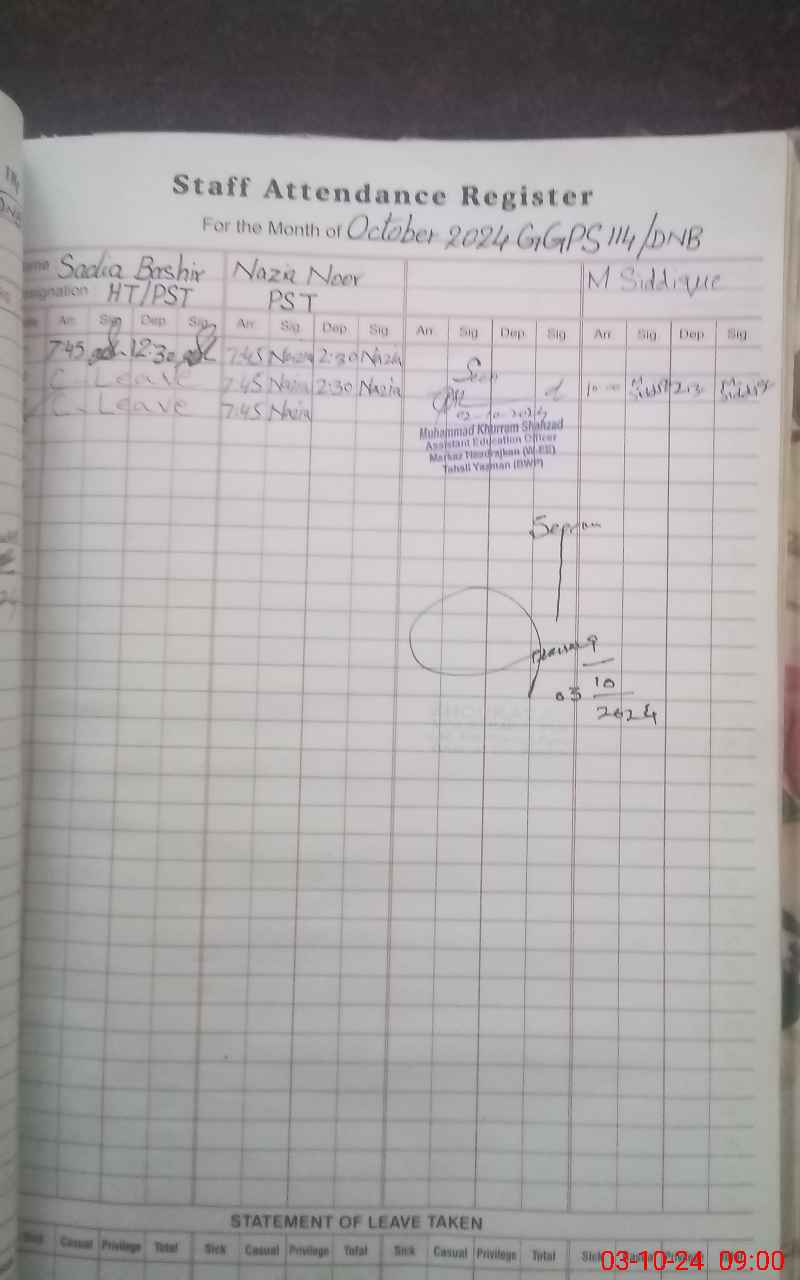 Staff Attendance Register
For the Month of October 2024 GGPS 114/DNB
Sadia Bashir Nazia Noor M Siddique
HT/PST PST
Arr. Sig. Dep. Sig. Arr. Sig. Dep. Sig. Arr. Sig. Dep. Sig. Arr. Sig. Dep. Sig.
7:45 12:30 7:45 Nazia 2:30 Nazia
C. Leave 7:45 Nazia 2:30 Nazia Seen 10
C. Leave 7:45 Nazia
02-10-2024
Muhammad Khurram Shahzad
Assistant Education Officer
Markaz Headrajkan (W-EE)
Tahsil Yazman (BWP)
03 10
2024
STATEMENT OF LEAVE TAKEN
Sick Casual Privilege Total Sick Casual Privilege Total Sick Casual Privilege Total Sick Casual Privilege Total
03-10-24 09:00